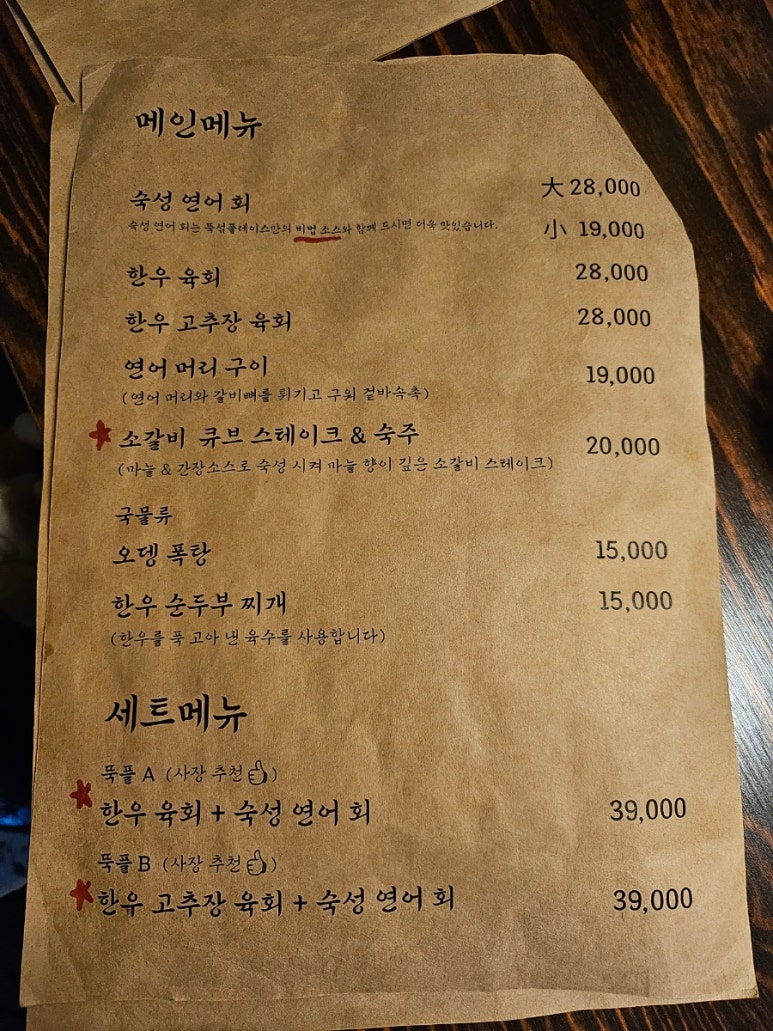 메인메뉴
숙성 연어 회 大 28,000
숙성 연어 회는 뚝섬플레이스만의 비법 소스와 함께 드시면 더욱 맛있습니다. 小 19,000
한우 육회 28,000
한우 고추장 육회 28,000
연어 머리 구이 19,000
(연어 머리와 갈비뼈를 튀기고 구워 겉바속촉)
소갈비 큐브 스테이크 & 숙주 20,000
(마늘 & 간장소스로 숙성 시켜 마늘 향이 깊은 소갈비 스테이크)
국물류
오뎅 폭탕 15,000
한우 순두부 찌개 15,000
(한우를 푹 고아 낸 육수를 사용합니다)
세트메뉴
뚝플 A (사장 추천👍)
한우 육회 + 숙성 연어 회 39,000
뚝플 B (사장 추천👍)
한우 고추장 육회 + 숙성 연어 회 39,000